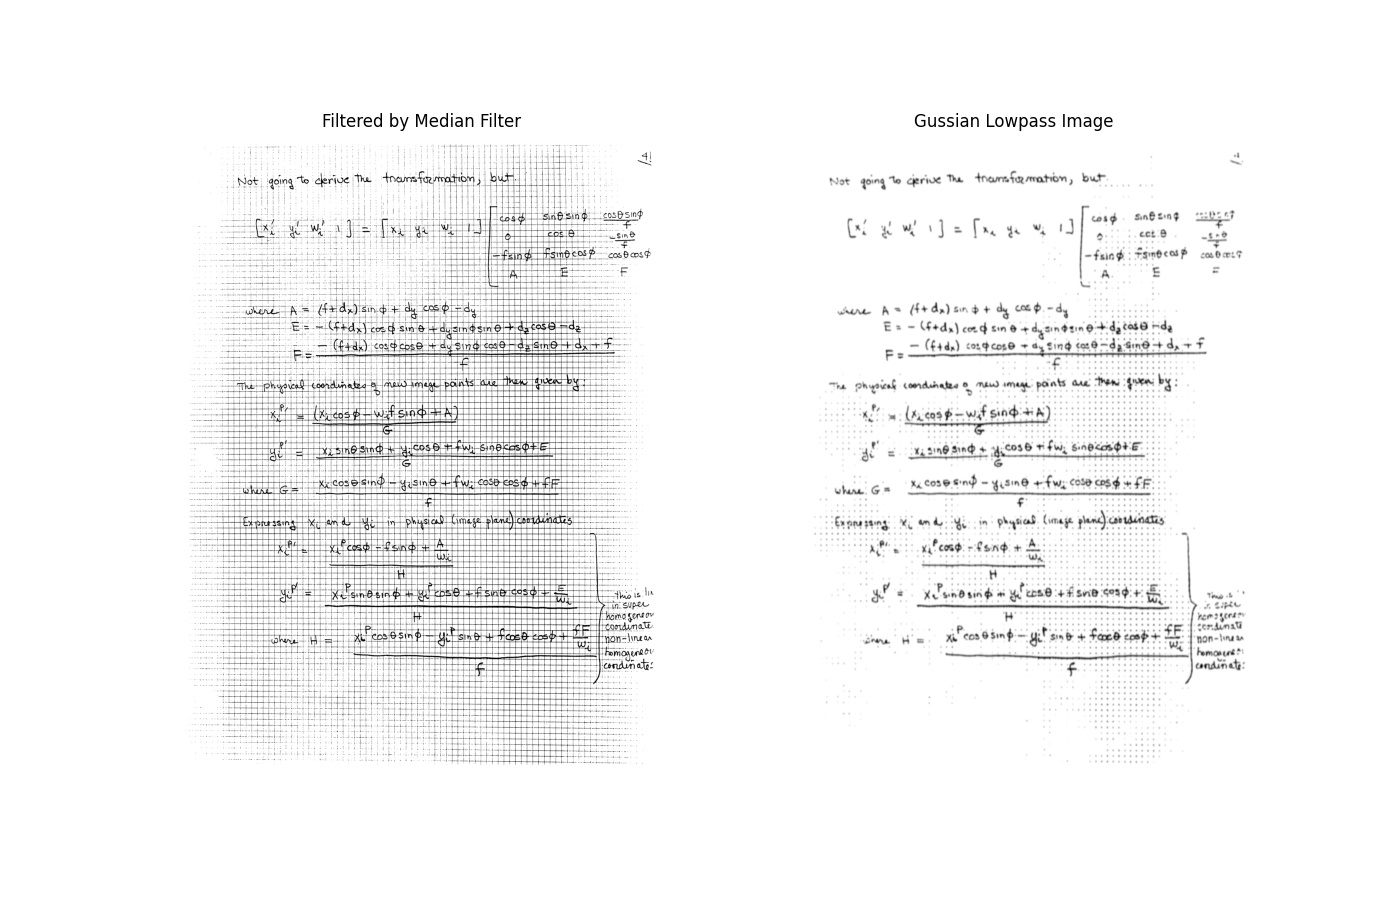 Filtered by Median Filter
4
Not going to derive the transformation, but
[xi' yi' wi' 1] = [xi yi wi 1] [cosφ sinθsinφ cosθsinφ/f
0 cosθ -sinθ/f
-fsinφ fsinθcosφ cosθcosφ
A E F
where A = (f+dx) sinφ + dy cosφ - dy
E = -(f+dx) cosφ sinθ + dy sinφ sinθ + dz cosθ - dz
F = -(f+dx) cosφ cosθ + dy sinφ cosθ - dz sinθ + dx + f
f
The physical coordinates of new image points are then given by:
xi^p' = (xi cosφ - wi f sinφ + A)
G
yi^p' = xi sinθ sinφ + yi cosθ + f wi sinθcosφ + E
G
where G = xi cosθ sinφ - yi sinθ + f wi cosθ cosφ + fF
f
Expressing xi and yi in physical (image plane) coordinates
xi^p' = xi^p cosφ - f sinφ + A/wi
H
yi^p' = xi^p sinθ sinφ + yi^p cosθ + f sinθ cosφ + E/wi
H
where H = xi^p cosθ sinφ - yi^p sinθ + f cosθ cosφ + fF/wi
f
This is
in super
homogeneou
coordinate
non-linear
homogeneou
coordinates
Gussian Lowpass Image
4
Not going to derive the transformation, but
[xi' yi' wi' 1] = [xi yi wi 1] [cosφ sinθsinφ cosθsinφ/f
0 cosθ -sinθ/f
-fsinφ fsinθcosφ cosθcosφ
A E F
where A = (f+dx) sinφ + dy cosφ - dy
E = -(f+dx) cosφ sinθ + dy sinφ sinθ + dz cosθ - dz
F = -(f+dx) cosφ cosθ + dy sinφ cosθ - dz sinθ + dx + f
f
The physical coordinates of new image points are then given by:
xi^p' = (xi cosφ - wi f sinφ + A)
G
yi^p' = xi sinθ sinφ + yi cosθ + f wi sinθcosφ + E
G
where G = xi cosθ sinφ - yi sinθ + f wi cosθ cosφ + fF
f
Expressing xi and yi in physical (image plane) coordinates
xi^p' = xi^p cosφ - f sinφ + A/wi
H
yi^p' = xi^p sinθ sinφ + yi^p cosθ + f sinθ cosφ + E/wi
H
where H = xi^p cosθ sinφ - yi^p sinθ + f cosθ cosφ + fF/wi
f
This is
in super
homogeneou
coordinate
non-linear
homogeneou
coordinates